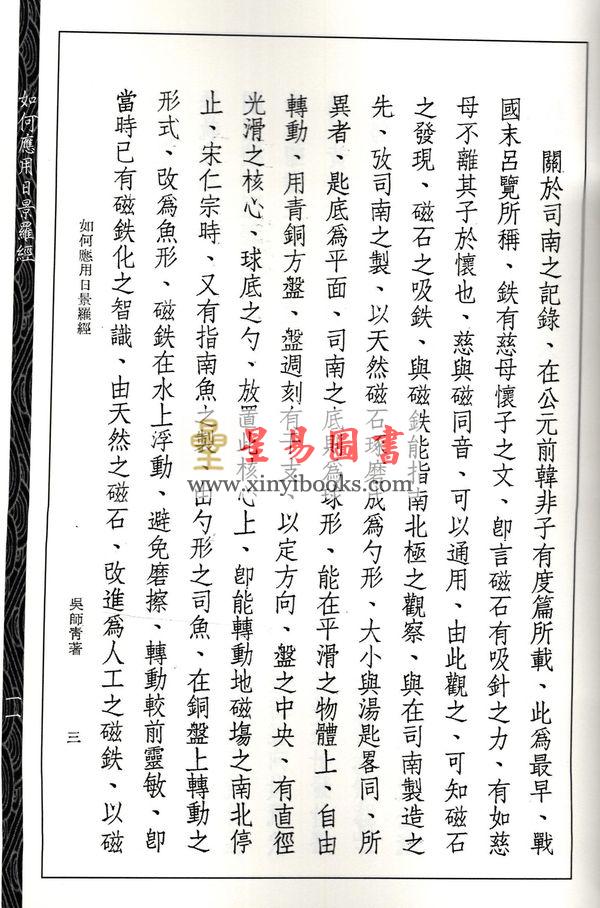 關於司南之記錄、在公元前韓非子有度篇所載、此為最早、戰
國末呂覽所稱、鉄有慈母懷子之文、卽言磁石有吸針之力、有如慈
母不離其子於懷也、慈與磁同音、可以通用、由此觀之、可知磁石
之發現、磁石之吸鉄、與磁鉄能指南北極之觀察、與在司南製造之
先、攷司南之製、以天然磁石琢磨成為勺形、大小與湯匙畧同、所
異者、匙底為平面、司南之底則為球形、能在平滑之物體上、自由
轉動、用青銅方盤、盤週刻有干支、以定方向、盤之中央、有直徑
光滑之核心、球底之勺、放置此核心上、卽能轉動地磁塲之南北停
止、宋仁宗時、又有指南魚之製、由勺形之司魚、在銅盤上轉動之
形式、改為魚形、磁鉄在水上浮動、避免磨擦、轉動較前靈敏、卽
當時已有磁鉄化之智識、由天然之磁石、改進為人工之磁鉄、以磁
如何應用日景羅經
吳師青著
三
如何應用日景羅經
一一
星易圖書
www.xinyibooks.com